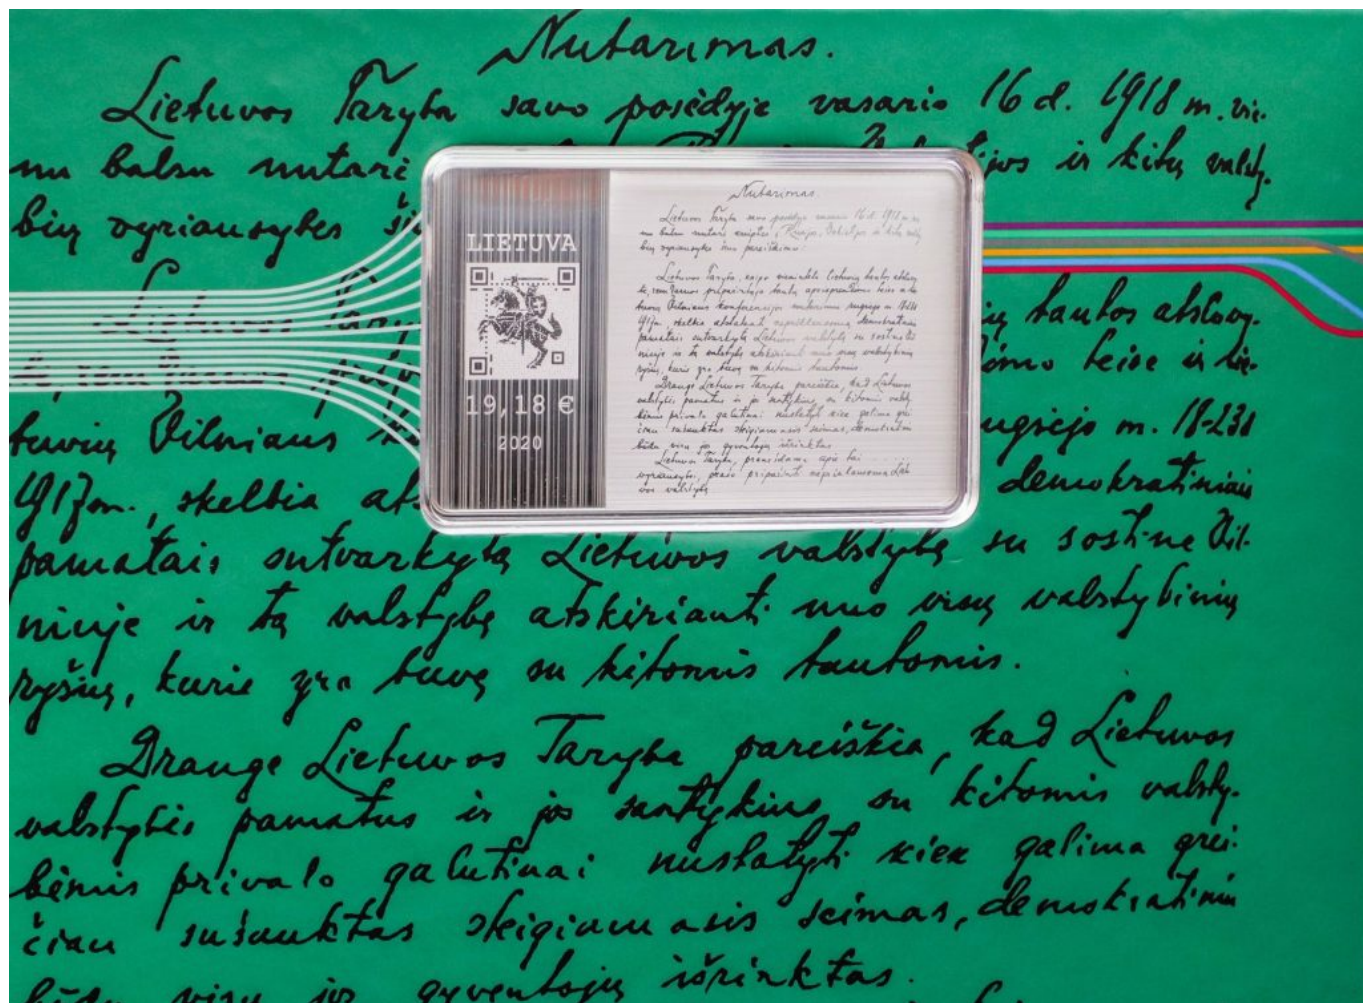 Nutarimas.
Lietuvos Taryba savo posėdyje vasario 16 d. 1918 m. vie-
nu balsu nutarė ir kitų valsty-
bių vyriausybes
tautos atstovy-
teise ir lie-
tuvių Vilniaus m. 18-23 d.
1917 m., skelbia demokratiniais
pamatais sutvarkytą Lietuvos valstybę su sostine Vil-
niuje ir tą valstybę atskirianti nuo visų valstybinių
ryšių, kurie yra buvę su kitomis tautomis.
Drauge Lietuvos Taryba pareiškia, kad Lietuvos
valstybės pamatus ir jos santykius su kitomis valsty-
bėmis privalo galutinai nustatyti kiek galima grei-
čiau sušauktas steigiamasis seimas, demokratiniu
būdu visų jos gyventojų išrinktas.
LIETUVA
19,18 €
2020
Nutarimas.
Lietuvos Taryba savo posėdyje vasario 16 d. 1918 m. vie-
nu balsu nutarė kreiptis į Rusijos, Vokietijos ir kitų valsty-
bių vyriausybes šiuo pareiškimu:
Lietuvos Taryba, kaipo vienintelė lietuvių tautos atstovy-
bė, remdamos pripažintąja tautų apsisprendimo teise ir lie-
tuvių Vilniaus konferencijos nutarimu rugsėjo m. 18-23 d.
1917 m., skelbia atstatanti nepriklausomą demokratiniais
pamatais sutvarkytą Lietuvos valstybę su sostine Vil-
niuje ir tą valstybę atskirianti nuo visų valstybinių
ryšių, kurie yra buvę su kitomis tautomis.
Drauge Lietuvos Taryba pareiškia, kad Lietuvos
valstybės pamatus ir jos santykius su kitomis valsty-
bėmis privalo galutinai nustatyti kiek galima grei-
čiau sušauktas steigiamasis seimas, demokratiniu
būdu visų jos gyventojų išrinktas.
Lietuvos Taryba, pranešdama apie tai ..........
vyriausybei, prašo pripažinti nepriklausomą Lietu-
vos valstybę.